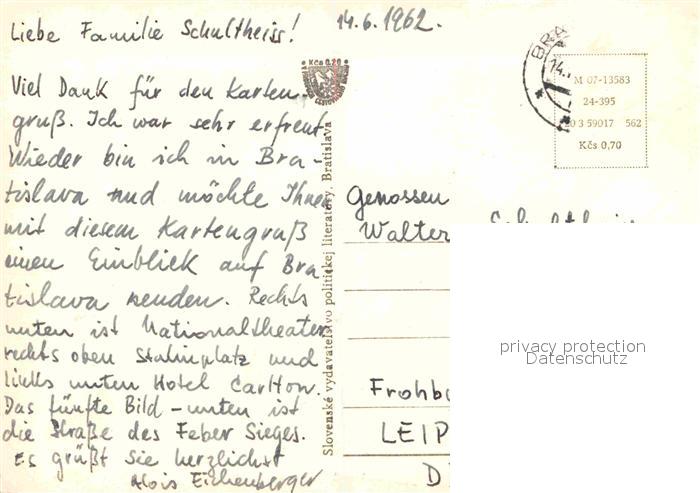 Liebe Familie Schultheiss!
14.6.1962.
Viel Dank für den Karten-
gruß. Ich war sehr erfreut.
Wieder bin ich in Bra-
tislava und möchte Ihnen
mit diesem Kartengruß
einen Einblick auf Bra-
tislava senden. Rechts
unten ist Nationaltheater
rechts oben Stalinplatz und
links unten Hotel Carlton.
Das fünfte Bild - unten ist
die Straße des Feber Sieges.
Es grüßt Sie herzlichst
Alois Eichenberger
Kčs 0,20
Slovenské vydavateľstvo politickej literatúry, Bratislava
BRA
14.
M 07-13583
24-395
03 59017 562
Kčs 0,70
Genossen
Walter
Frohb
LEIP
D
privacy protection
Datenschutz